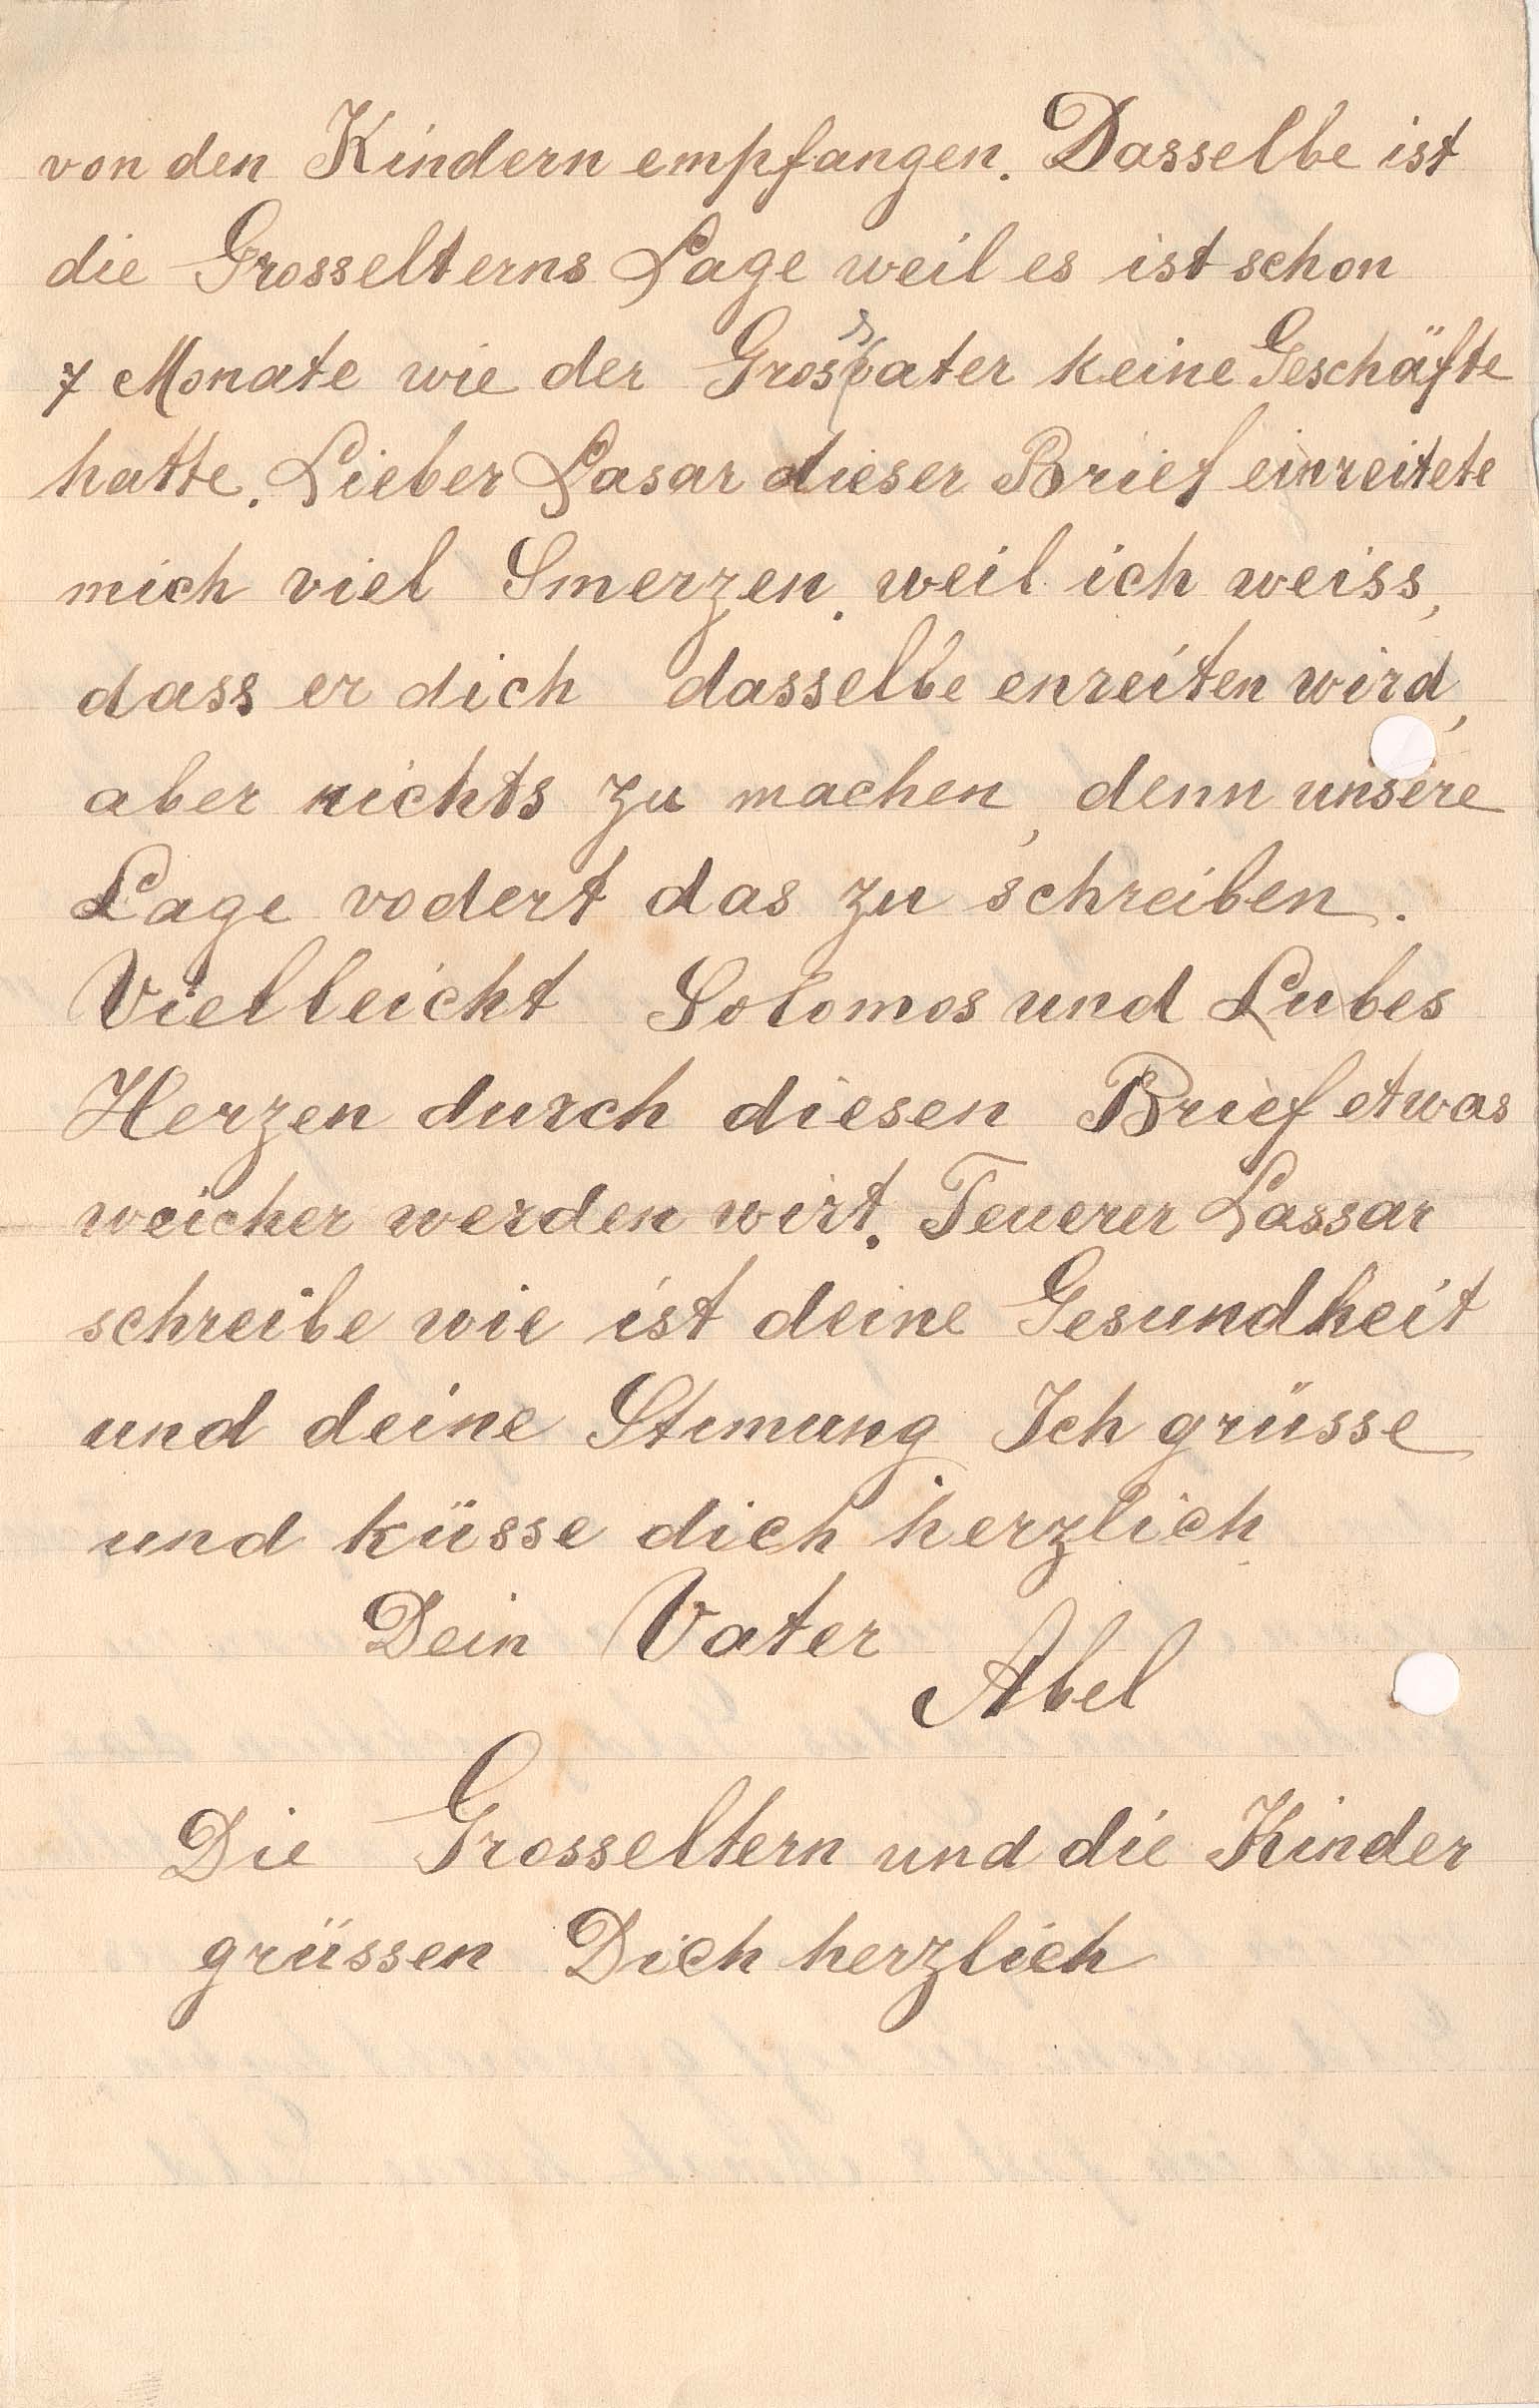 von den Kindern empfangen. Dasselbe ist
die Grosselterns Lage weil es ist schon
7 Monate wie der Grossvater keine Geschäfte
hatte. Lieber Lasar dieser Brief einreitete
mich viel Smerzen. weil ich weiss,
dass er dich dasselbe enreiten wird,
aber nichts zu machen, denn unsere
Lage vodert das zu schreiben.
Vielleicht Solomos und Lubes
Herzen durch diesen Brief etwas
weicher werden wirt. Teuerer Lassar
schreibe wie ist deine Gesundheit
und deine Stimung Ich grüsse
und küsse dich herzlich
Dein Vater
Abel
Die Grosseltern und die Kinder
grüssen Dich herzlich